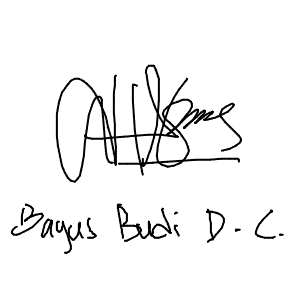 Bagus Budi D. C.